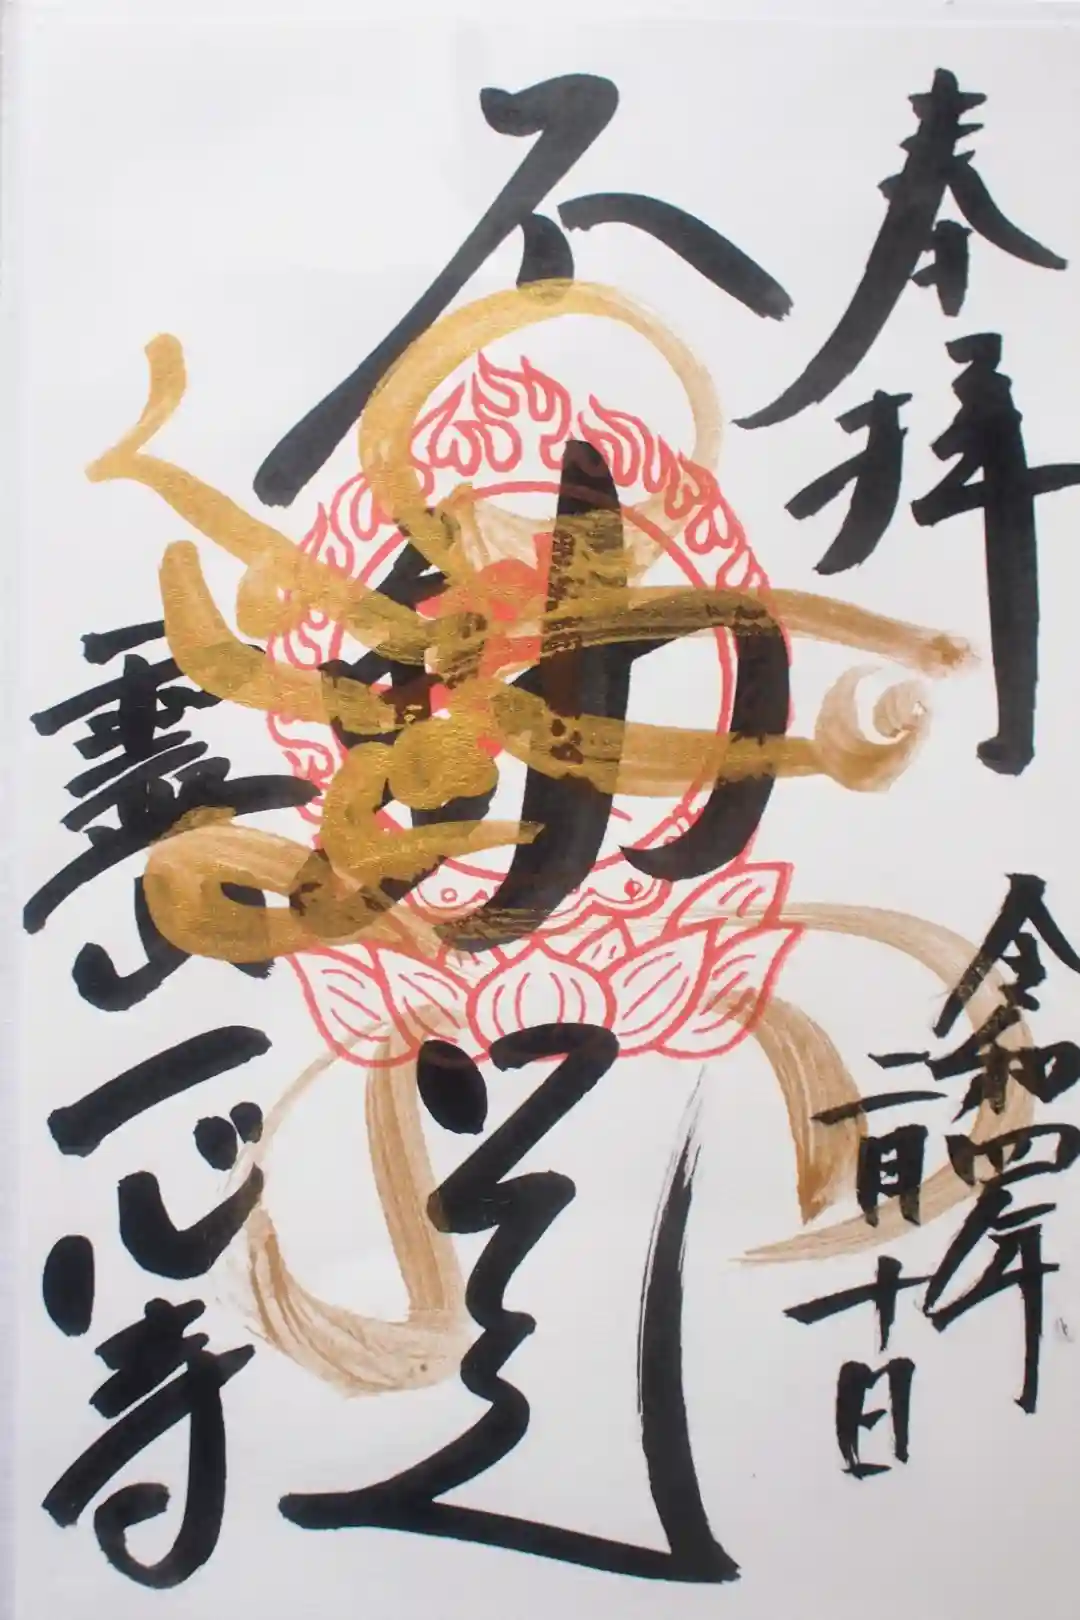 奉拝
令和四年
二月十日
不動
霊山
一心寺